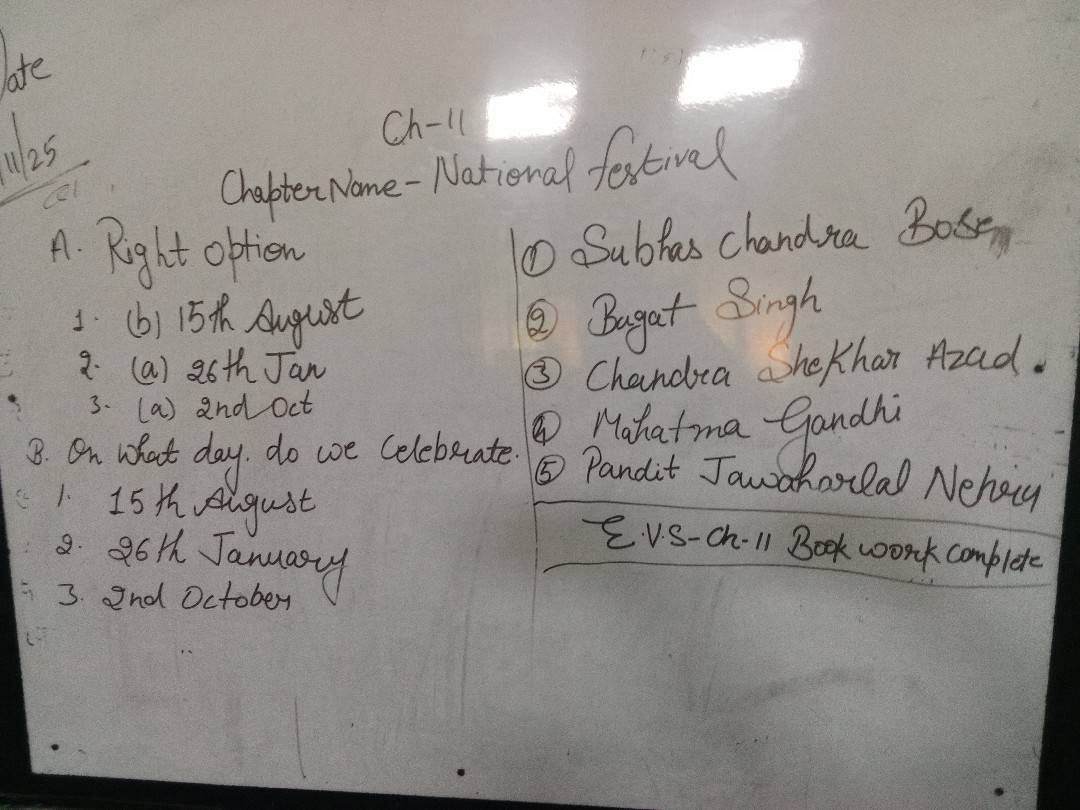 Date
11/25
Ch-11
Chapter Name - National festival
A. Right option
1. (b) 15th August
2. (a) 26th Jan
3. (a) 2nd Oct
B. On what day. do we celebrate.
1. 15th August
2. 26th January
3. 2nd October
① Subhas Chandra Bose
② Bagat Singh
③ Chandra Shekhar Azad.
④ Mahatma Gandhi
⑤ Pandit Jawaharlal Nehru
E.V.S-Ch-11 Book work complete